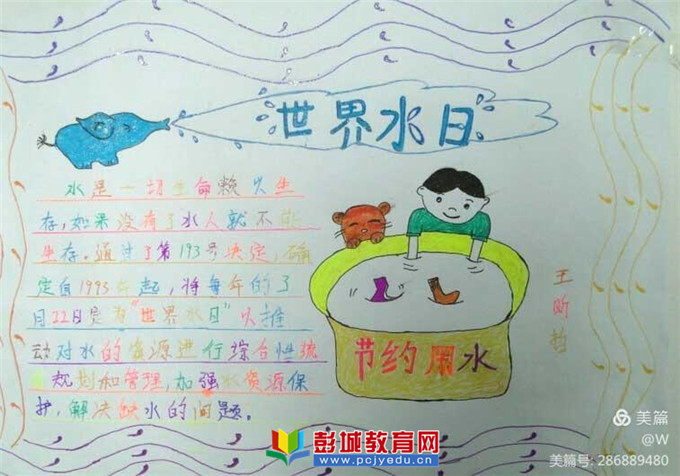 世界水日
水是一切生命赖以生
存,如果没有了水人就不能
生存。通过了第193号决定,确
定自1993年起,将每年的3
月22日定为"世界水日"以推
动对水的资源进行综合性统
规划和管理,加强水资源保
护,解决缺水的问题。
节约用水
王昕哲
彭城教育网
www.pcjyedu.cn
美篇
@W
美篇号: 286889480